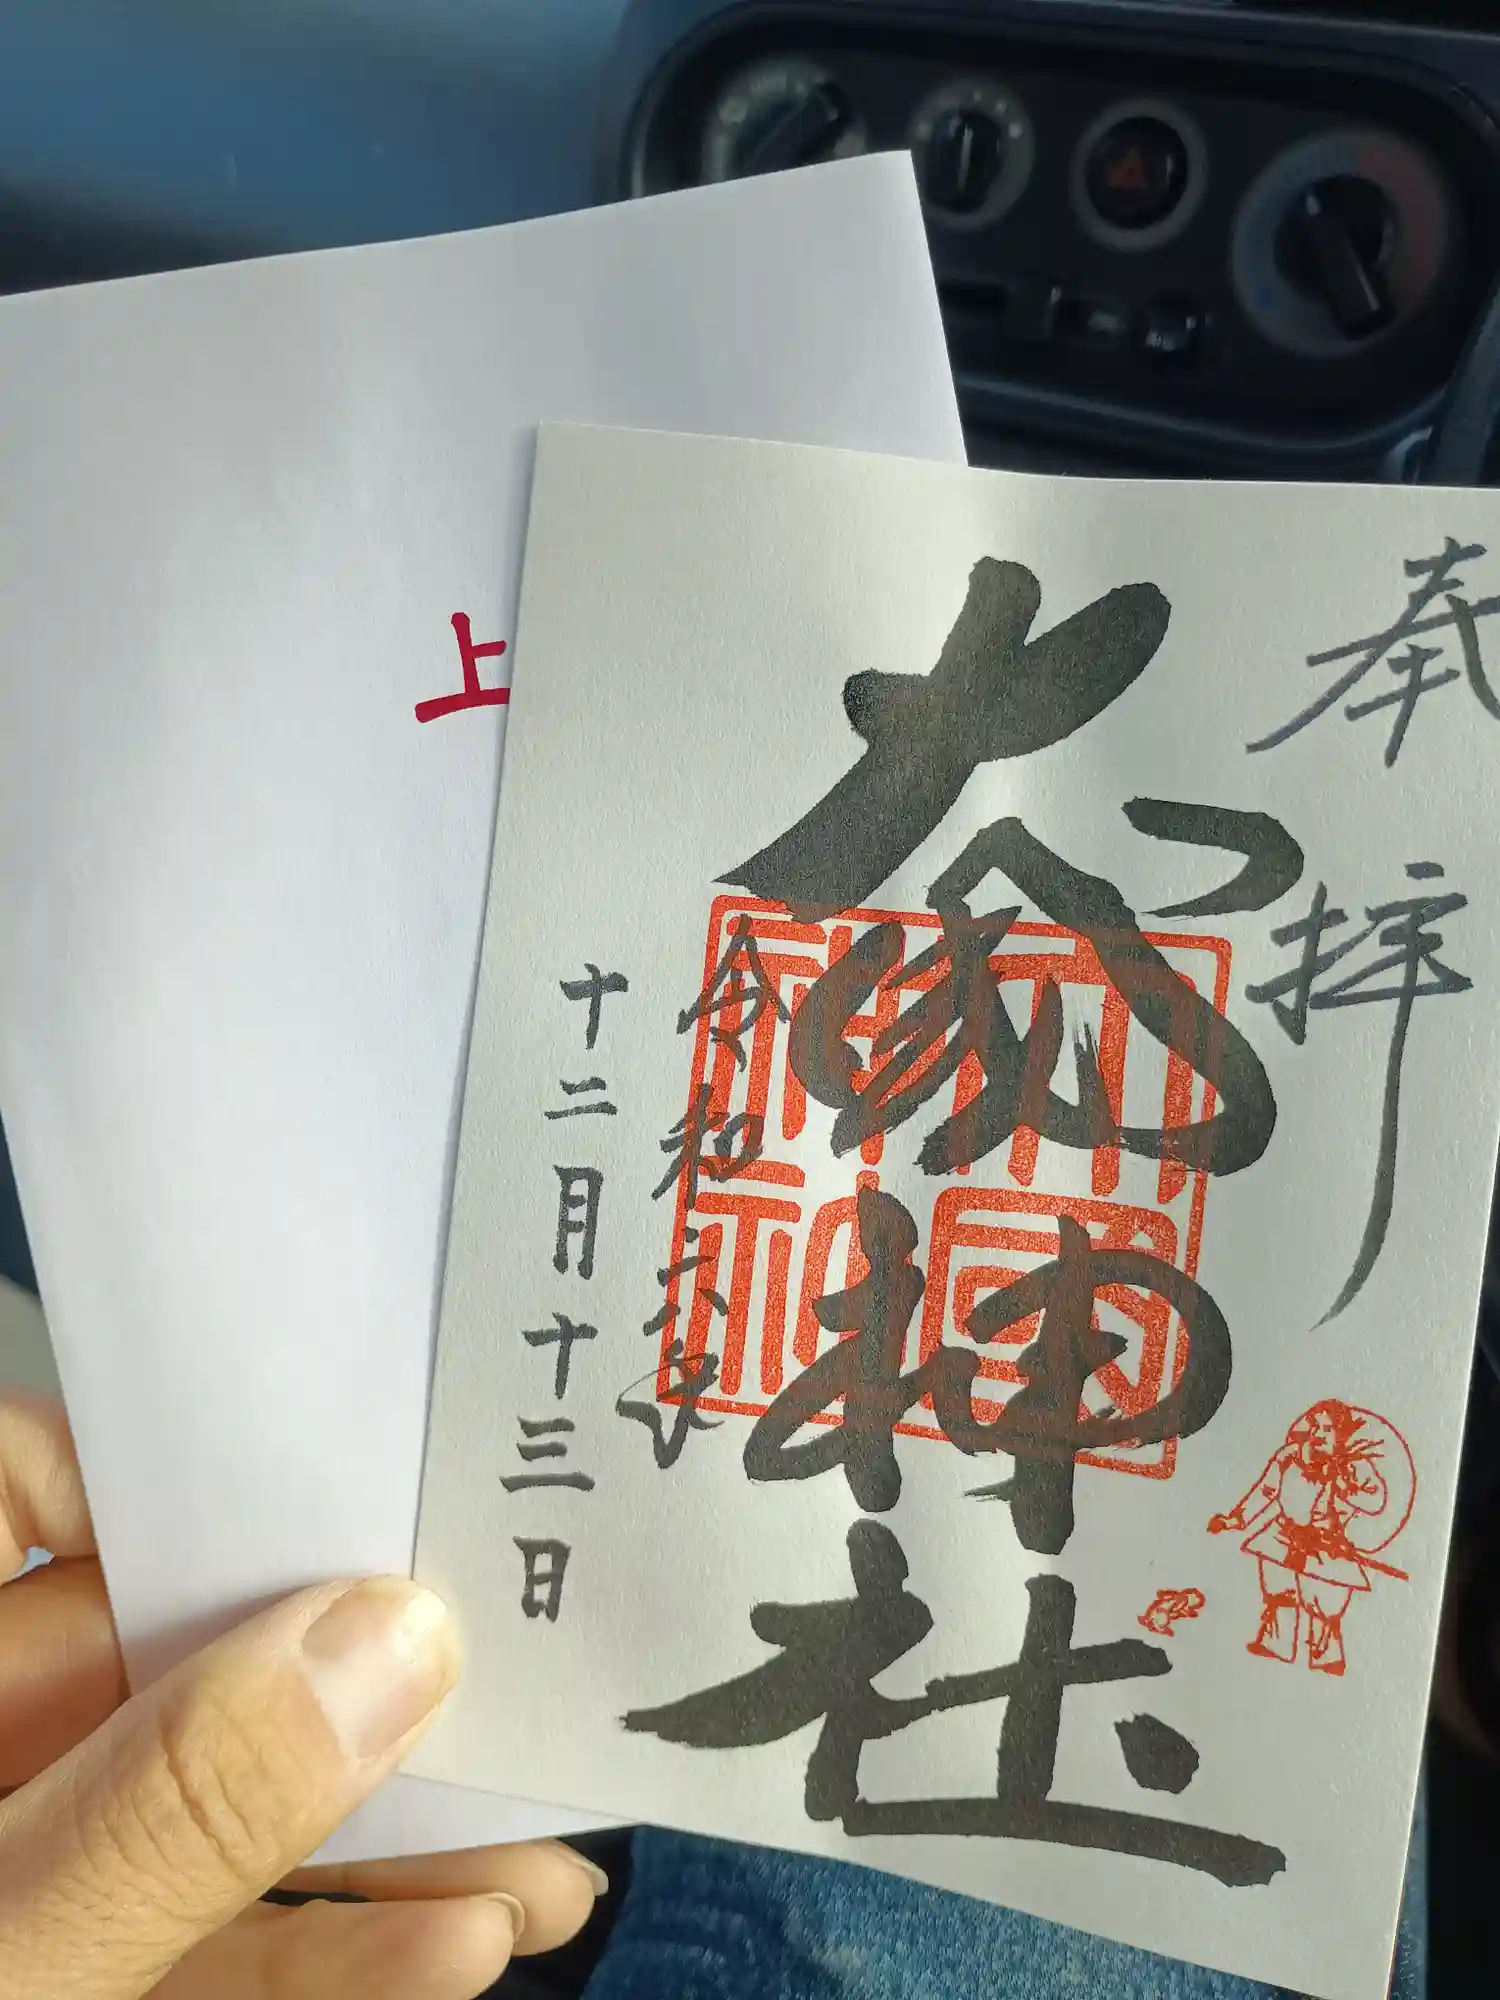 奉拝
大國神社
令和六年
十二月十三日
上